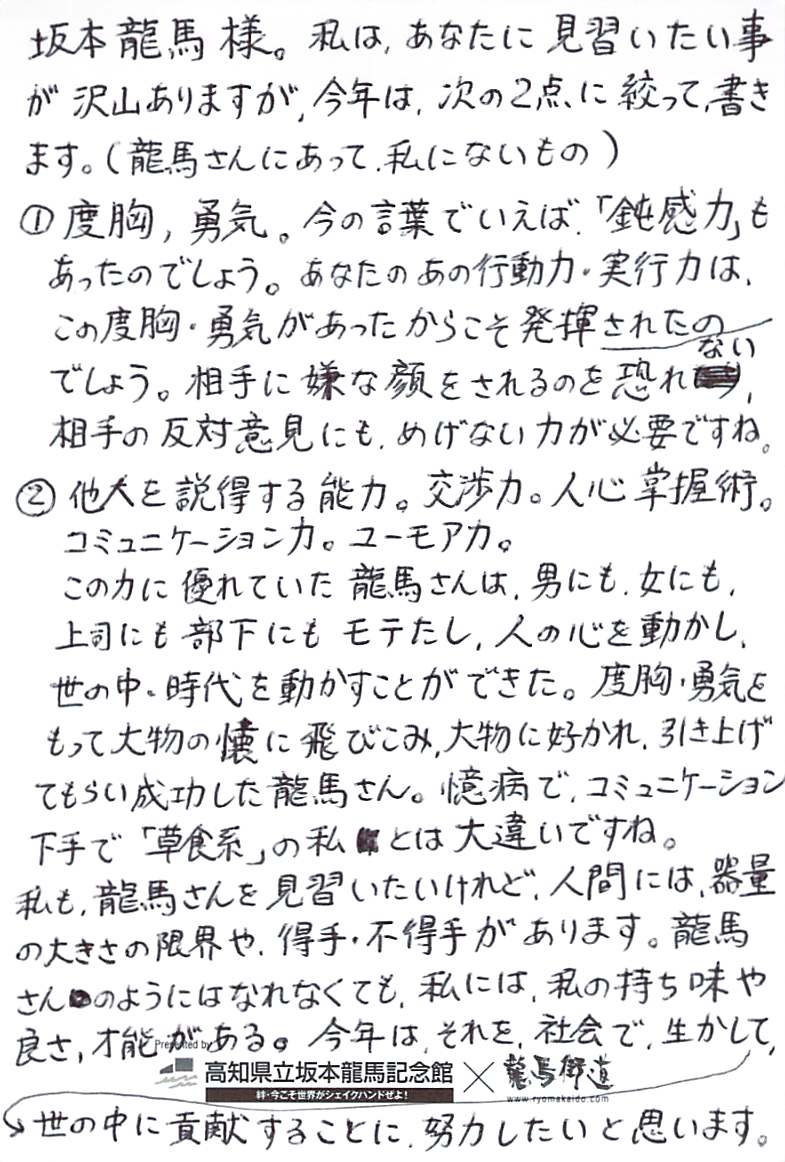 坂本龍馬様。私は、あなたに見習いたい事
が沢山ありますが、今年は、次の2点に絞って、書き
ます。(龍馬さんにあって、私にないもの)
①度胸,勇気。今の言葉でいえば、「鈍感力」も
あったのでしょう。あなたのあの行動力・実行力は、
この度胸・勇気があったからこそ発揮されたの
でしょう。相手に嫌な顔をされるのを恐れない、
相手の反対意見にも、めげない力が必要ですね。
②他人を説得する能力。交渉力。人心掌握術。
コミュニケーション力。ユーモア力。
この力に優れていた龍馬さんは、男にも、女にも、
上司にも部下にもモテたし、人の心を動かし、
世の中・時代を動かすことができた。度胸・勇気を
もって大物の懐に飛びこみ、大物に好かれ、引き上げ
てもらい成功した龍馬さん。憶病で、コミュニケーション
下手で「草食系」の私とは大違いですね。
私も、龍馬さんを見習いたいけれど、人間には、器量
の大きさの限界や、得手・不得手があります。龍馬
さんのようにはなれなくても、私には、私の持ち味や
良さ,才能がある。今年は、それを、社会で、生かして、
Presented by
高知県立坂本龍馬記念館×龍馬街道
絆・今こそ世界がシェイクハンドぜよ!
www.ryomakaido.com
世の中に貢献することに、努力したいと思います。